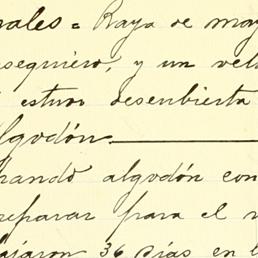 rales = Raya de may
nsequiero, y un vel
estuvo descubierta
algodón.
pando algodón con
reparar para el
ajaron 36 dias en l